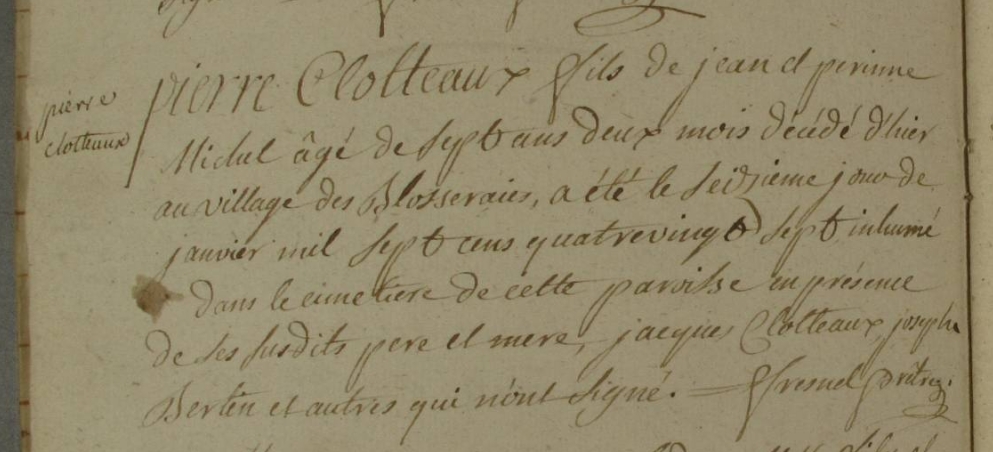 pierre
clotteaux
pierre Clotteaux fils de jean et perinne
Michel âgé de sept ans deux mois décédé d'hier
au village des Blosseraies, a été le seizieme jour de
janvier mil sept cens quatrevingt sept inhumé
dans le cimetiere de cette paroisse en présence
de ses susdits pere et mere, jacques Clotteaux, joseph
Bertin et autres qui n'ont signé. fresnel prêtre